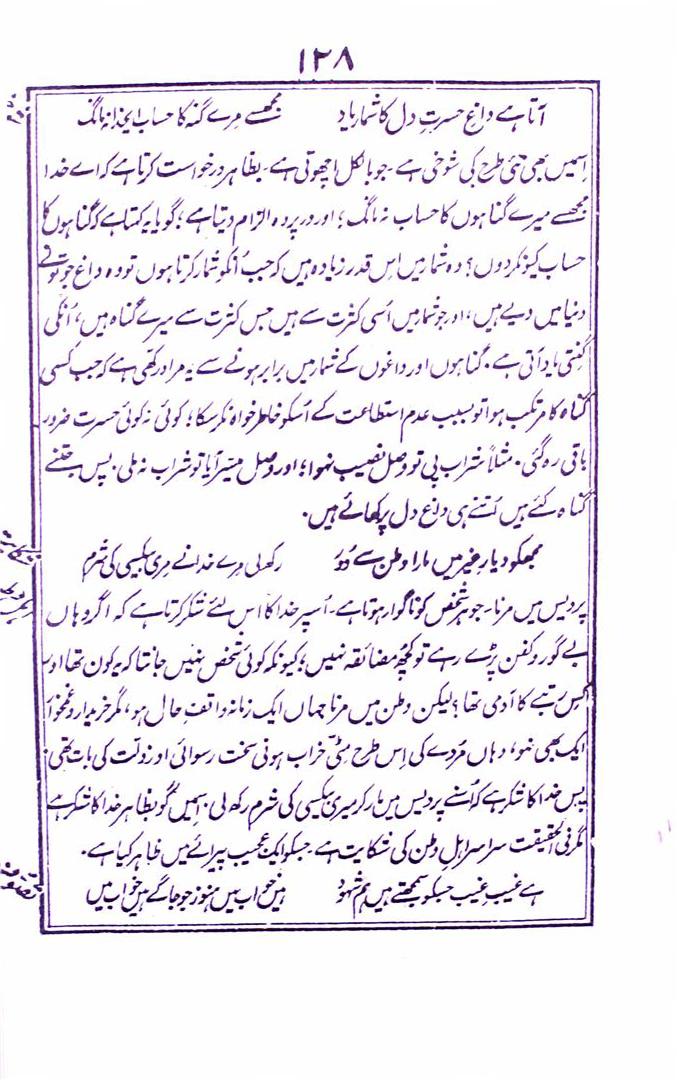 ۱۲۸
آتا ہے داغِ حسرتِ دل کا شمار یاد مجھسے مرے گنہ کا حساب ایخدا نہ مانگ
اِسمیں بھی نئی طرح کی شوخی ہے۔ جو بالکل اچھوتی ہے۔ بظاہر درخواست کرتا ہے کہ اے خدا
مجھسے میرے گناہوں کا حساب نہ مانگ؛ اور در پردہ الزام دیتا ہے؛ گویا یہ کہتا ہے کہ گناہوں کا
حساب کیونکر دوں؟ وہ شمار میں اِس قدر زیادہ ہیں کہ جب اُنکو شمار کرتا ہوں تو وہ داغ جو تونے
دنیا میں دیے ہیں، اور جو شمار میں اُسی کثرت سے ہیں جس کثرت سے میرے گناہ ہیں، اُنکی
گنتی یاد آتی ہے۔ گناہوں اور داغوں کے شمار میں برابر ہونے سے یہ مراد رکھی ہے کہ جب کسی
گناہ کا مرتکب ہوا تو بسبب عدم استطاعت کے اُسکو خاطر خواہ نکر سکا؛ کوئی نہ کوئی حسرت ضرور
باقی رہ گئی۔ مثلاً شراب پی تو وصل نصیب نہوا؛ اور وصل میسّر آیا تو شراب نہ ملی۔ پس جتنے
گناہ کئے ہیں اُتنے ہی داغ دل پر کھائے ہیں۔
مجھکو دیارِ غیر میں مارا وطن سے دُور رکھ لی مرے خدا نے مری بیکسی کی شرم
پردیس میں مرنا۔ جو ہر شخص کو ناگوار ہوتا ہے۔ اُسپر خدا کا اس لئے شکر کرتا ہے کہ اگر وہاں
بے گور و کفن پڑے رہے تو کچھ مضائقہ نہیں؛ کیونکہ کوئی شخص نہیں جانتا کہ یہ کون تھا اور
کس رتبے کا آدمی تھا؟ لیکن وطن میں مرنا جہاں ایک زمانہ واقفِ حال ہو، مگر خریدار و غمخوار
ایک بھی نہو، وہاں مُردے کی اِس طرح مٹی خراب ہونی سخت رسوائی اور ذلت کی بات تھی؛
پس خدا کا شکر ہے کہ اُسنے پردیس میں مار کر میری بیکسی کی شرم رکھ لی۔ اِسمیں گو بظاہر خدا کا شکر ہے
مگر فی الحقیقت سراسر اہلِ وطن کی شکایت ہے۔ جسکو ایک عجیب پیرائے میں ظاہر کیا ہے۔
ہے غیبِ غیب جسکو سمجھتے ہیں ہم شہود ہیں خواب میں ہنوز جو جاگے ہیں خواب میں